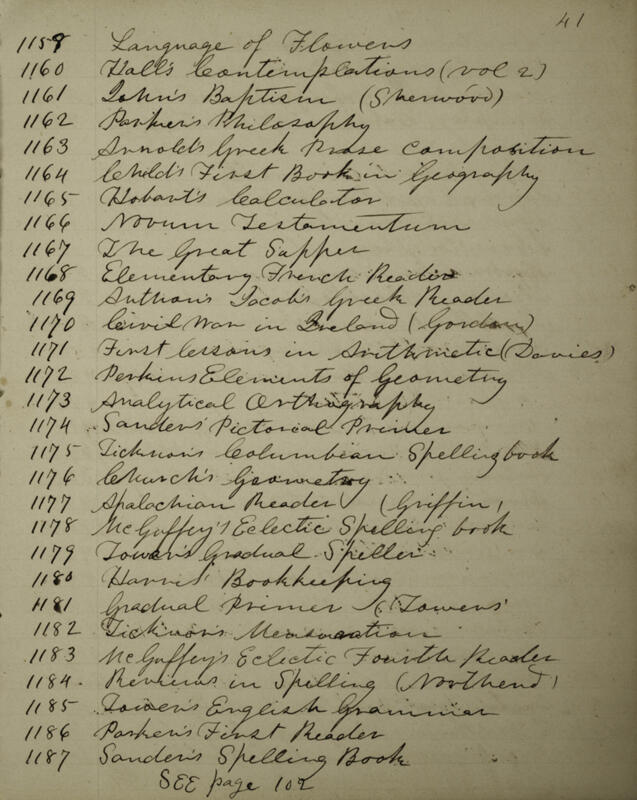 41
1159 Language of Flowers
1160 Hall's Contemplations (vol 2)
1161 John's Baptism (Sherwood)
1162 Parker's Philosophy
1163 Arnold's Greek Prose Composition
1164 Child's First Book in Geography
1165 Hobart's Calculator
1166 Novum Testamentum
1167 The Great Supper
1168 Elementary French Reader
1169 Anthon's Jacob's Greek Reader
1170 Civil War in Ireland (Gordon)
1171 First lessons in Arithmetic (Davies)
1172 Perkins Elements of Geometry
1173 Analytical Orthography
1174 Sanders' Pictorial Primer
1175 Ticknor's Columbian Spelling book
1176 Church's Geometry
1177 Apalachian Reader (Griffin)
1178 McGuffey's Eclectic Spelling book
1179 Tower's Gradual Speller
1180 Harris' Bookkeeping
1181 Gradual Primer (Towers'
1182 Ticknor's Mensuration
1183 McGuffey's Eclectic Fourth Reader
1184. Reviews in Spelling (Northend)
1185 Tower's English Grammar
1186 Parker's First Reader
1187 Sander's Spelling Book
SEE page 102